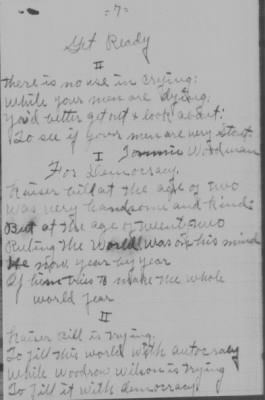 -7-
Get Ready
II
There is no use in crying;
While your men are dying,
You'd better get out & look about;
To see if your men are very stout
Tommie Woodman
I
For Democracy.
Kaiser bill at the age of two
Was very handsome and kind;
But at the age of twenty two
Ruling the World was on his mind
He now, year by year
If he tries to make the whole
world fear
II
Kaiser Bill is trying,
To fill this world with autocracy
While Woodrow Wilson is trying
To fill it with democracy.